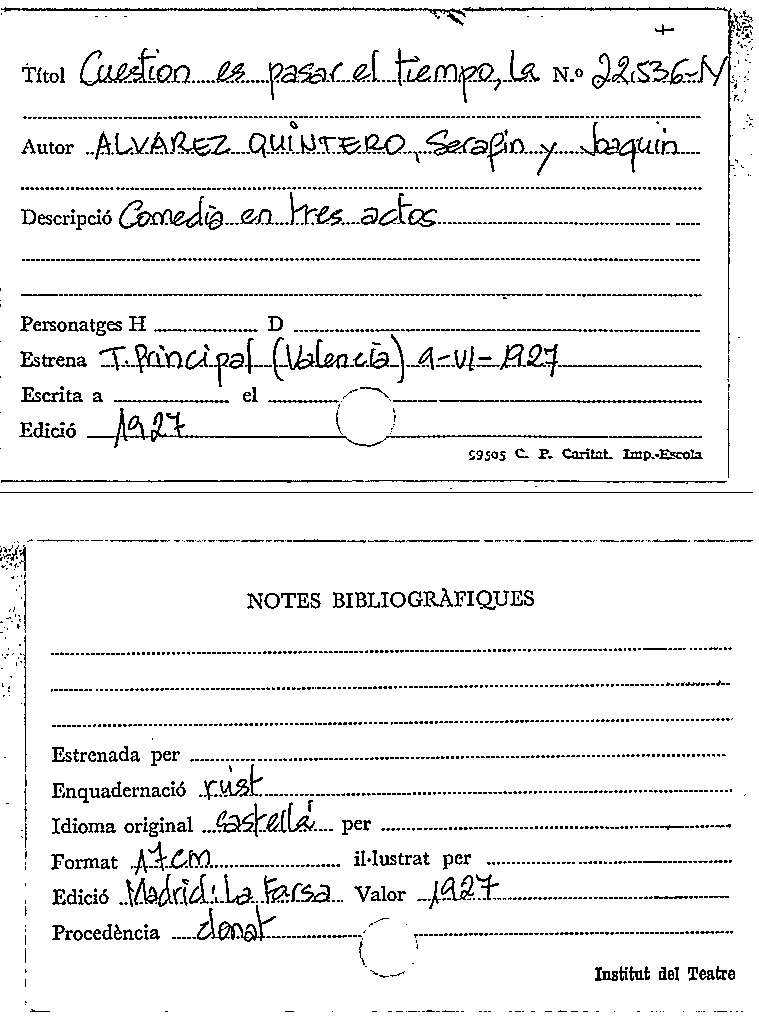 +
Títol Cuestion es pasar el tiempo, la N.º 22.536-N
Autor ALVAREZ QUINTERO, Serafin y Joaquin
Descripció Comedia en tres actos
Personatges H D
Estrena T. Principal (Valencia) 9-VI-1927
Escrita a el
Edició 1927
59505 C. P. Caritat. Imp.-Escola
NOTES BIBLIOGRÀFIQUES
Estrenada per
Enquadernació rúst
Idioma original castellá per
Format 17 cm il·lustrat per
Edició Madrid: La Farsa Valor 1927
Procedència donat
Institut del Teatre